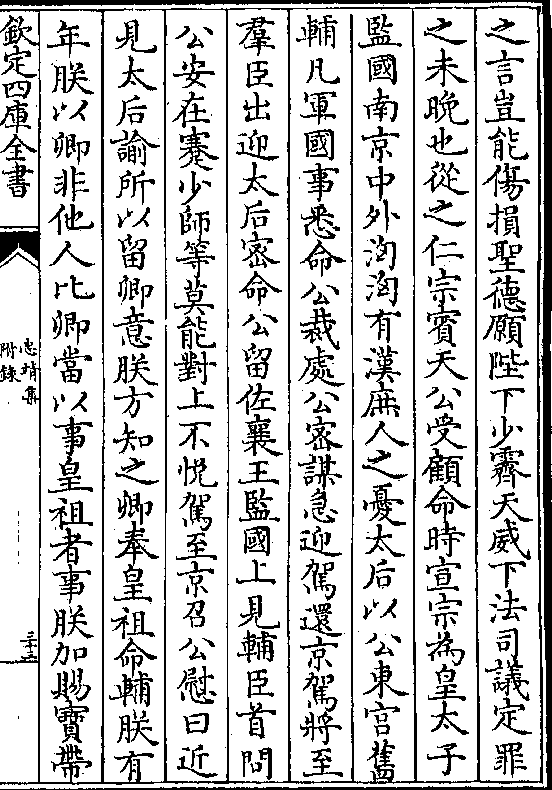 之言豈能傷損聖德願陛下少霽天威下法司議定罪
之未晚也從之仁宗賓天公受顧命時宣宗為皇太子
監國南京中外洶洶有漢庶人之憂太后以公東宮舊
輔凡軍國事悉命公裁處公密謀急迎駕還京駕將至
羣臣出迎太后密命公留佐襄王監國上見輔臣首問
公安在蹇少師等莫能對上不悅駕至京召公慰曰近
見太后諭所以留卿意朕方知之卿奉皇祖命輔朕有
年朕以卿非他人比卿當以事皇祖者事朕加賜寶帶
欽定四庫全書
忠靖集
附錄
三十二